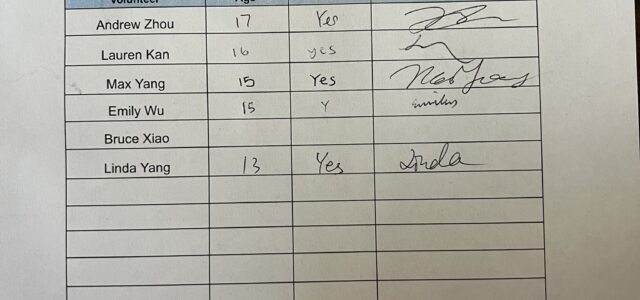 Volunteer
Andrew Zhou 17 Yes
Lauren Kan 16 yes
Max Yang 15 Yes Max Yang
Emily Wu 15 Y Emily
Bruce Xiao
Linda Yang 13 Yes Linda